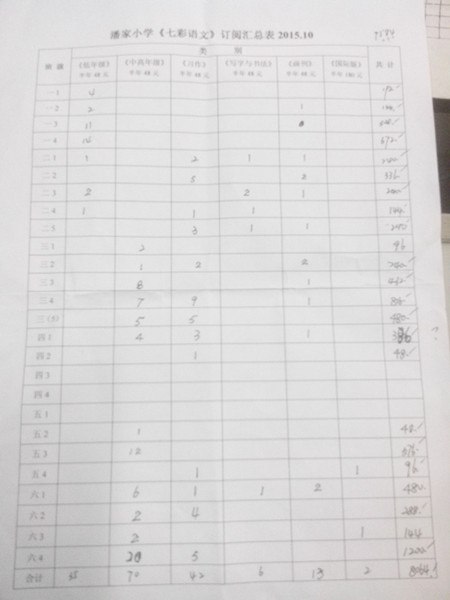 潘家小学《七彩语文》订阅汇总表 2015.10
班级 类别 共计
《低年级》 《中高年级》 《习作》 《写字与书法》 《画刊》 《国际版》
半年48元 半年48元 半年48元 半年48元 半年48元
一1 4 192
一2 2 1
一3 11 528
一4 14 672
二1 1 2 1 1 240
二2 5 2 336
二3 2 2 1 240
二4 1 1 1 144
二5 3 1 1 240
三1 2 96
三2 1 2 2 240
三3 8 1 432
三4 7 9 1
三(5) 5 5 480
四1 4 3 1 ?
四2 1 48
四3
四4
五1
五2 1 48
五3 12 576
五4 1 1 96
六1 6 1 1 2 480
六2 2 4 288
六3 2 1 144
六4 20 5 1200
合计 35 70 42 6 13 2 8064